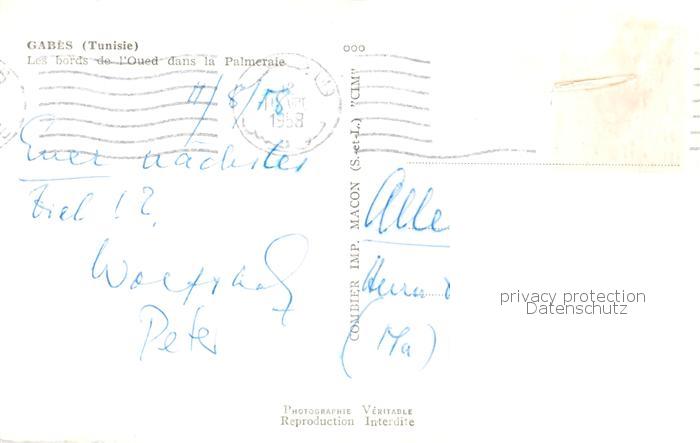 GABÈS (Tunisie)
Les bords de l'Oued dans la Palmeraie
11/8/58
1958
Euer nächstes
Ziel !?
Wolfgang
Peter
ooo
COMBIER IMP. MACON (S.-et-L.) "CIM"
Alle
Herrn
(Ma)
privacy protection
Datenschutz
PHOTOGRAPHIE VÉRITABLE
Reproduction Interdite